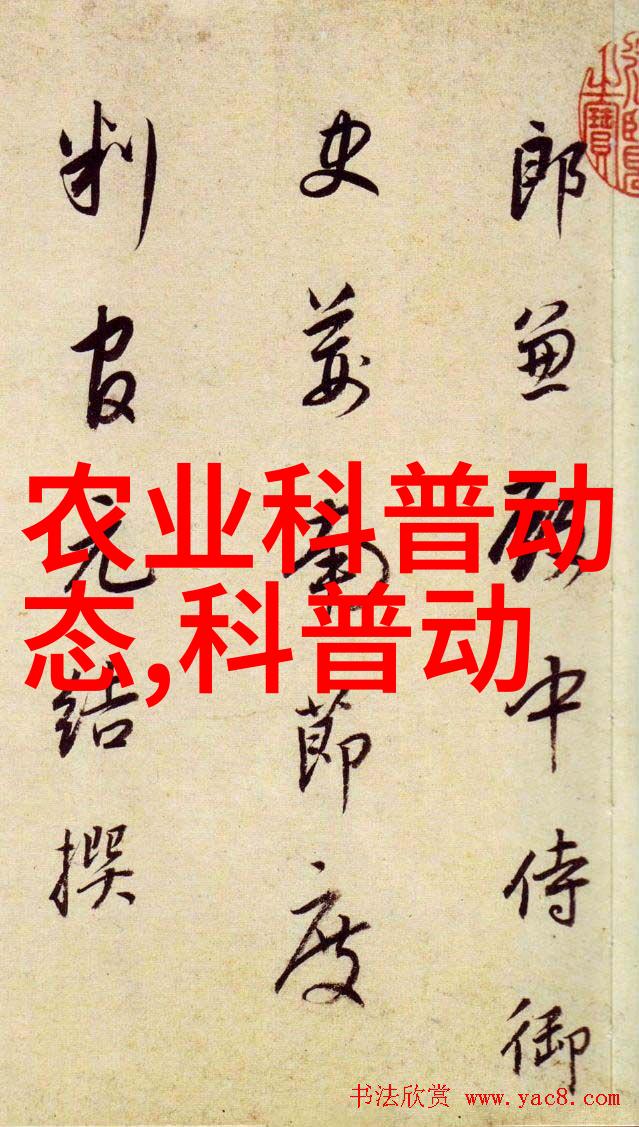 郎兼殿中侍御
史荊南節度
判官元結撰
农业科普动
态,科普动
书法欣赏 www.yac8.com